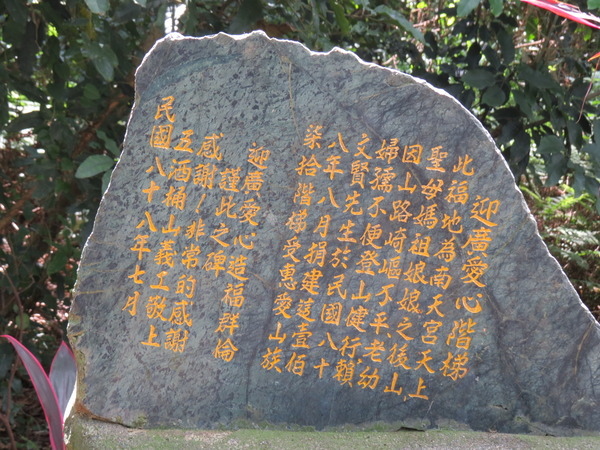 迎廣愛心階梯
此福地為南天宮天上
聖母媽祖娘娘之後山
因山路崎嶇不平老幼
婦孺不便登山健行賴
文賢先生於民國八十
八年八月捐建這壹佰
柒拾階梯受惠愛山族
迎廣愛心造福群倫
謹此之碑
感謝/非常的感謝
五酒桶山義工敬上
民國八十八年七月